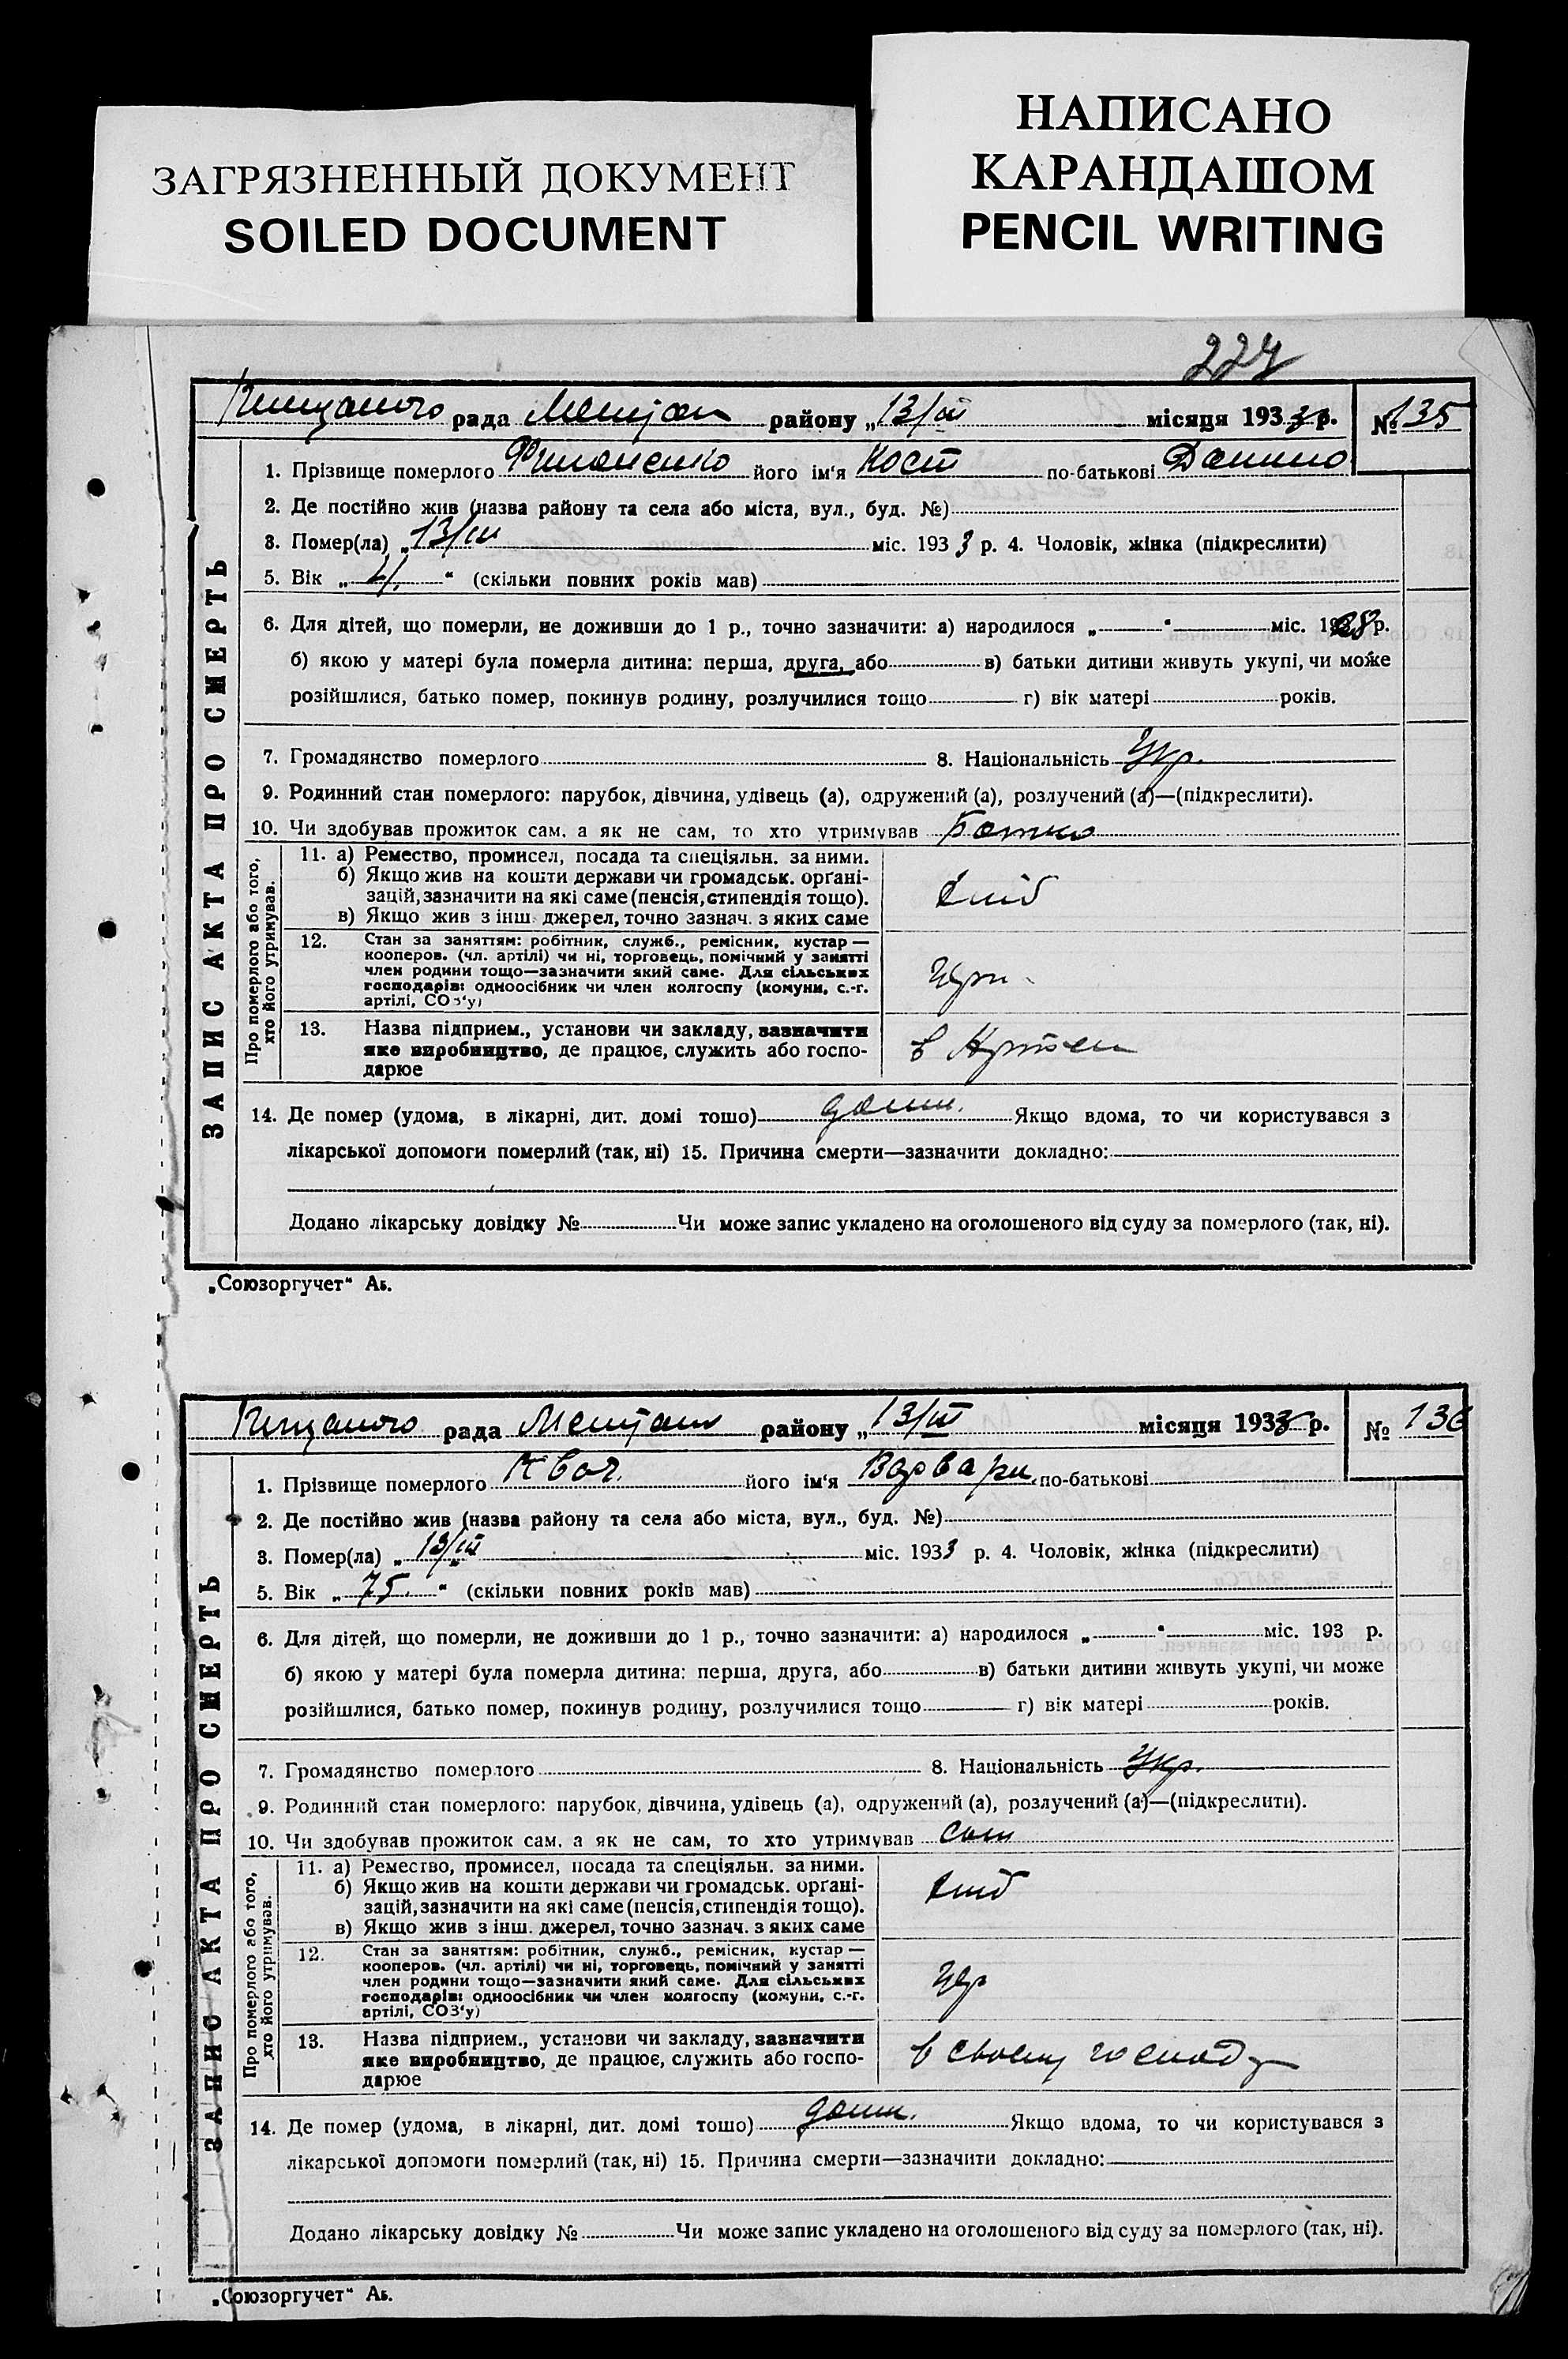 НАПИСАНО
КАРАНДАШОМ
PENCIL WRITING
ЗАГРЯЗНЕННЫЙ ДОКУМЕНТ
SOILED DOCUMENT
227
рада район у „13/III місяця 1933 р. №135
1. Прізвище померлого його ім'я Кост по-батькові Данило
2. Де постійно жив (назва району та села або міста, вул., буд. №)
3. Помер(ла) „13/III міс. 1933 р. 4. Чоловік, жінка (підкреслити)
5. Вік „4." (скільки повних років мав)
6. Для дітей, що померли, не доживши до 1 р., точно зазначити: а) народилося „ " міс. 1928 р.
б) якою у матері була померла дитина: перша, друга, або в) батьки дитини живуть укупі, чи може
розійшлися, батько помер, покинув родину, розлучилися тощо г) вік матері років.
7. Громадянство померлого 8. Національність Укр.
9. Родинний стан померлого: парубок, дівчина, удівець (а), одружений (а), розлучений (а)—(підкреслити).
10. Чи здобував прожиток сам, а як не сам, то хто утримував Батько
ЗАПИС АКТА ПРО СМЕРТЬ
Про померлого або того, хто його утримував.
11. а) Ремество, промисел, посада та спеціяльн. за ними.
б) Якщо жив на кошти держави чи громадськ. орґані-
зацій, зазначити на які саме (пенсія, стипендія тощо).
в) Якщо жив з інш. джерел, точно зазнач. з яких саме
12. Стан за заняттям: робітник, служб., ремісник, кустар—
кооперов. (чл. артілі) чи ні, торговець, помічний у занятті
член родини тощо—зазначити який саме. Для сільських
господарів: одноосібник чи член колгоспу (комуни, с.-г.
артілі, СОЗ'у)
13. Назва підприєм., установи чи закладу, зазначити
яке виробництво, де працює, служить або госпо-
дарює
в Артели
14. Де помер (удома, в лікарні, дит. домі тощо) доми. Якщо вдома, то чи користувався з
лікарської допомоги померлий (так, ні) 15. Причина смерти—зазначити докладно:
Додано лікарську довідку № Чи може запис укладено на оголошеного від суду за померлого (так, ні).
„Союзоргучет" Аь.
рада району „13/III місяця 1933 р. № 136
1. Прізвище померлого Квач. його ім'я Варвари по-батькові
2. Де постійно жив (назва району та села або міста, вул., буд. №)
3. Помер(ла) „13/III міс. 1933 р. 4. Чоловік, жінка (підкреслити)
5. Вік „75." (скільки повних років мав)
6. Для дітей, що померли, не доживши до 1 р., точно зазначити: а) народилося „ " міс. 193 р.
б) якою у матері була померла дитина: перша, друга, або в) батьки дитини живуть укупі, чи може
розійшлися, батько помер, покинув родину, розлучилися тощо г) вік матері років.
7. Громадянство померлого 8. Національність Укр.
9. Родинний стан померлого: парубок, дівчина, удівець (а), одружений (а), розлучений (а)—(підкреслити).
10. Чи здобував прожиток сам, а як не сам, то хто утримував сам
ЗАПИС АКТА ПРО СМЕРТЬ
Про померлого або того, хто його утримував.
11. а) Ремество, промисел, посада та спеціяльн. за ними.
б) Якщо жив на кошти держави чи громадськ. орґані-
зацій, зазначити на які саме (пенсія, стипендія тощо).
в) Якщо жив з інш. джерел, точно зазнач. з яких саме
12. Стан за заняттям: робітник, служб., ремісник, кустар—
кооперов. (чл. артілі) чи ні, торговець, помічний у занятті
член родини тощо—зазначити який саме. Для сільських
господарів: одноосібник чи член колгоспу (комуни, с.-г.
артілі, СОЗ'у)
13. Назва підприєм., установи чи закладу, зазначити
яке виробництво, де працює, служить або госпо-
дарює
в своему господ
14. Де помер (удома, в лікарні, дит. домі тощо) доми. Якщо вдома, то чи користувався з
лікарської допомоги померлий (так, ні) 15. Причина смерти—зазначити докладно:
Додано лікарську довідку № Чи може запис укладено на оголошеного від суду за померлого (так, ні).
„Союзоргучет" Аь.